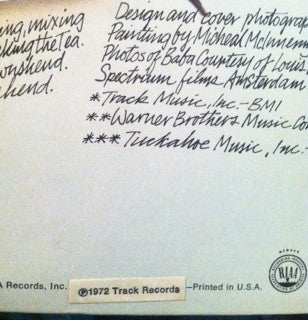 ing, mixing
king the Tea.
wnshend.
hend.
Design and cover photograp
Painting by Micheal McInnern
Photos of Baba Courtesy of Louis
Spectrum films Amsterdam
*Track Music, Inc.-BMI
**Warner Brothers Music Co
***Tuckahoe Music, Inc.-
A Records, Inc.
℗1972 Track Records
—Printed in U.S.A.
RIAA